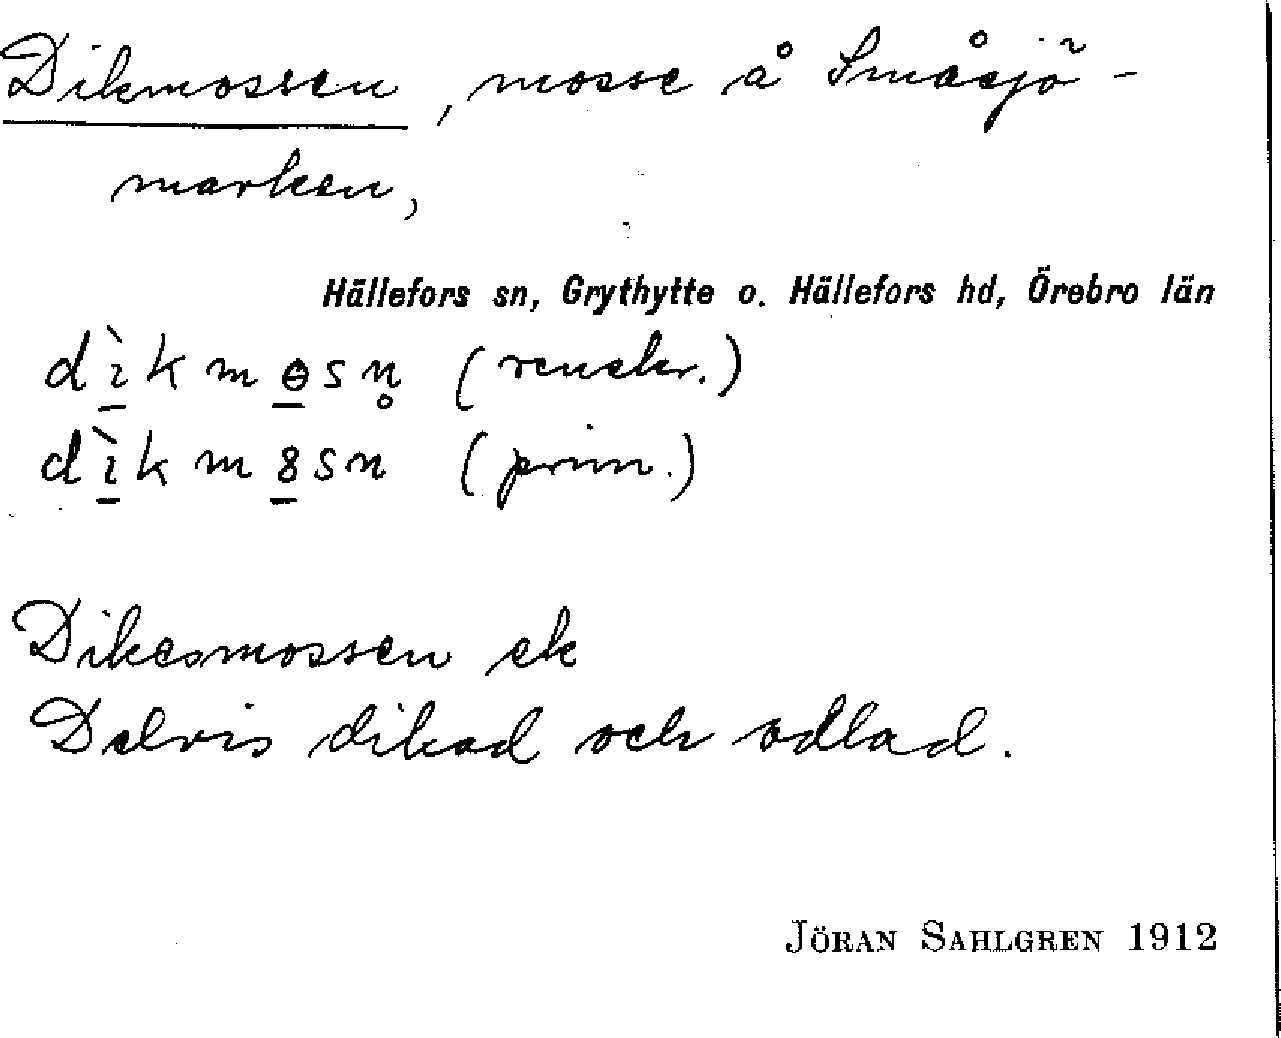 Dikmossen, mosse å Småsjö-
marken,
Hällefors sn, Grythytte o. Hällefors hd, Örebro län
dı̱̀kmɵ̱sn̥ (renskr.)
dı̱̀km8̱sn (prim.)
Dikesmossen ek
Delvis dikad och odlad.
JÖRAN SAHLGREN 1912